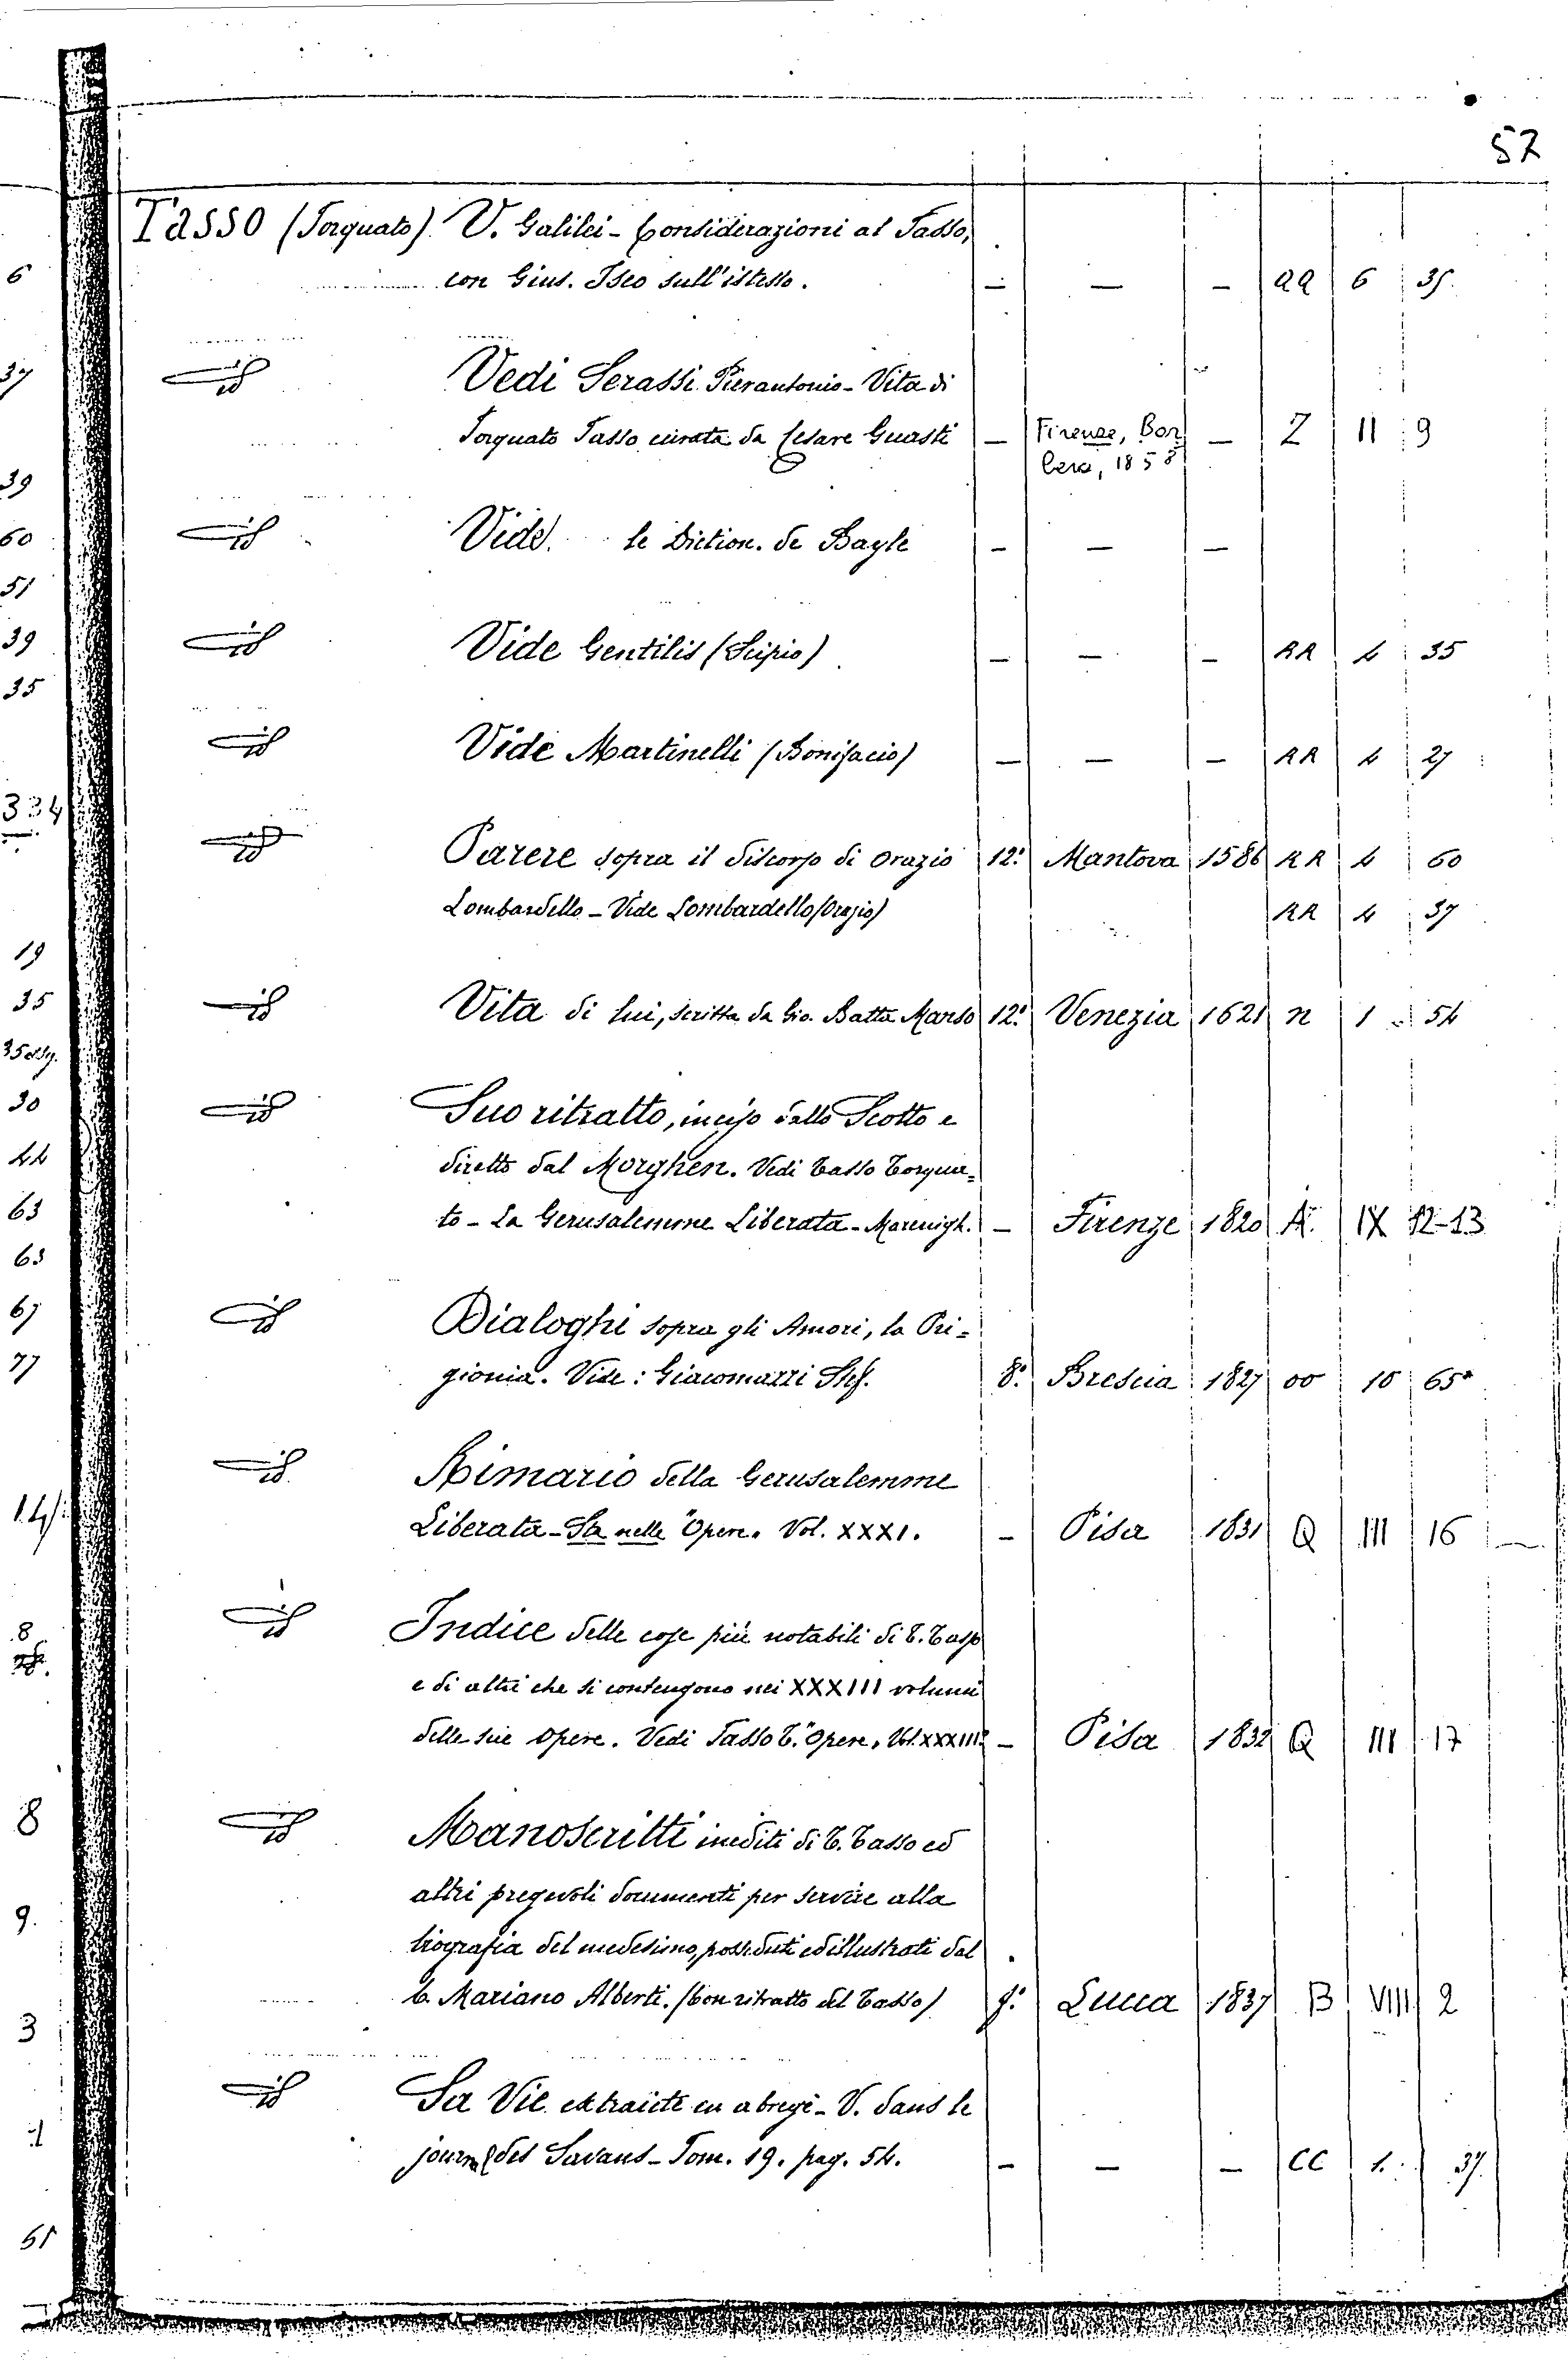 57
Tasso (Torquato). V. Galilei - Considerazioni al Tasso,
con Gius. Iseo sull'istesso. — — — QQ 6 35.
id Vedi Serassi Pierantonio - Vita di
Torquato Tasso curata da Cesare Guasti — Firenze, Bar — Z II 9
bera, 1858
id Vide. le Diction. de Bayle — — —
id Vide Gentilis (Scipio) — — — RR 4 35
id Vide Martinelli (Bonifacio) — — — RR 4 27
id Parere sopra il discorso di Orazio 12.° Mantova 1586 RR 4 60
Lombardello - Vide Lombardello (Orazio) RR 4 37
id Vita di lui, scritta da Gio. Batta Manso 12.° Venezia 1621 n 1 54
id Suo ritratto, inciso dallo Scotto e
diretto dal Morghen. Vedi Tasso Torqua=
to - La Gerusalemme Liberata - Marenigh. — Firenze 1820 A. IX 12-13
id Dialoghi sopra gli Amori, la Pri=
gionia. Vide: Giacomazzi Stef. 8.° Brescia 1827 oo 10 65*
id Rimario della Gerusalemme
Liberata - Sta nelle "Opere" Vol. XXXI. — Pisa 1831 Q III 16
id Indice delle cose più notabili di T. Tasso
e di altri che si contengono nei XXXIII volumi
delle sue Opere. Vedi Tasso T. "Opere" Vol. XXXIII.° — Pisa 1832 Q III 17
id Manoscritti inediti di T. Tasso ed
altri pregevoli documenti per servire alla
biografia del medesimo, posseduti ed illustrati dal
C. Mariano Alberti. (Con ritratto del Tasso) f.° Lucca 1837 B VIII 2
id Sa Vie extraicte en abregé - V. dans le
journal des Savans - Tom. 19. pag. 54. — — — CC 1. 37.
6
37
39
60
51
39
35
334
19
35
30
44
63
63
67
77
14
8
8
9.
3
1
51